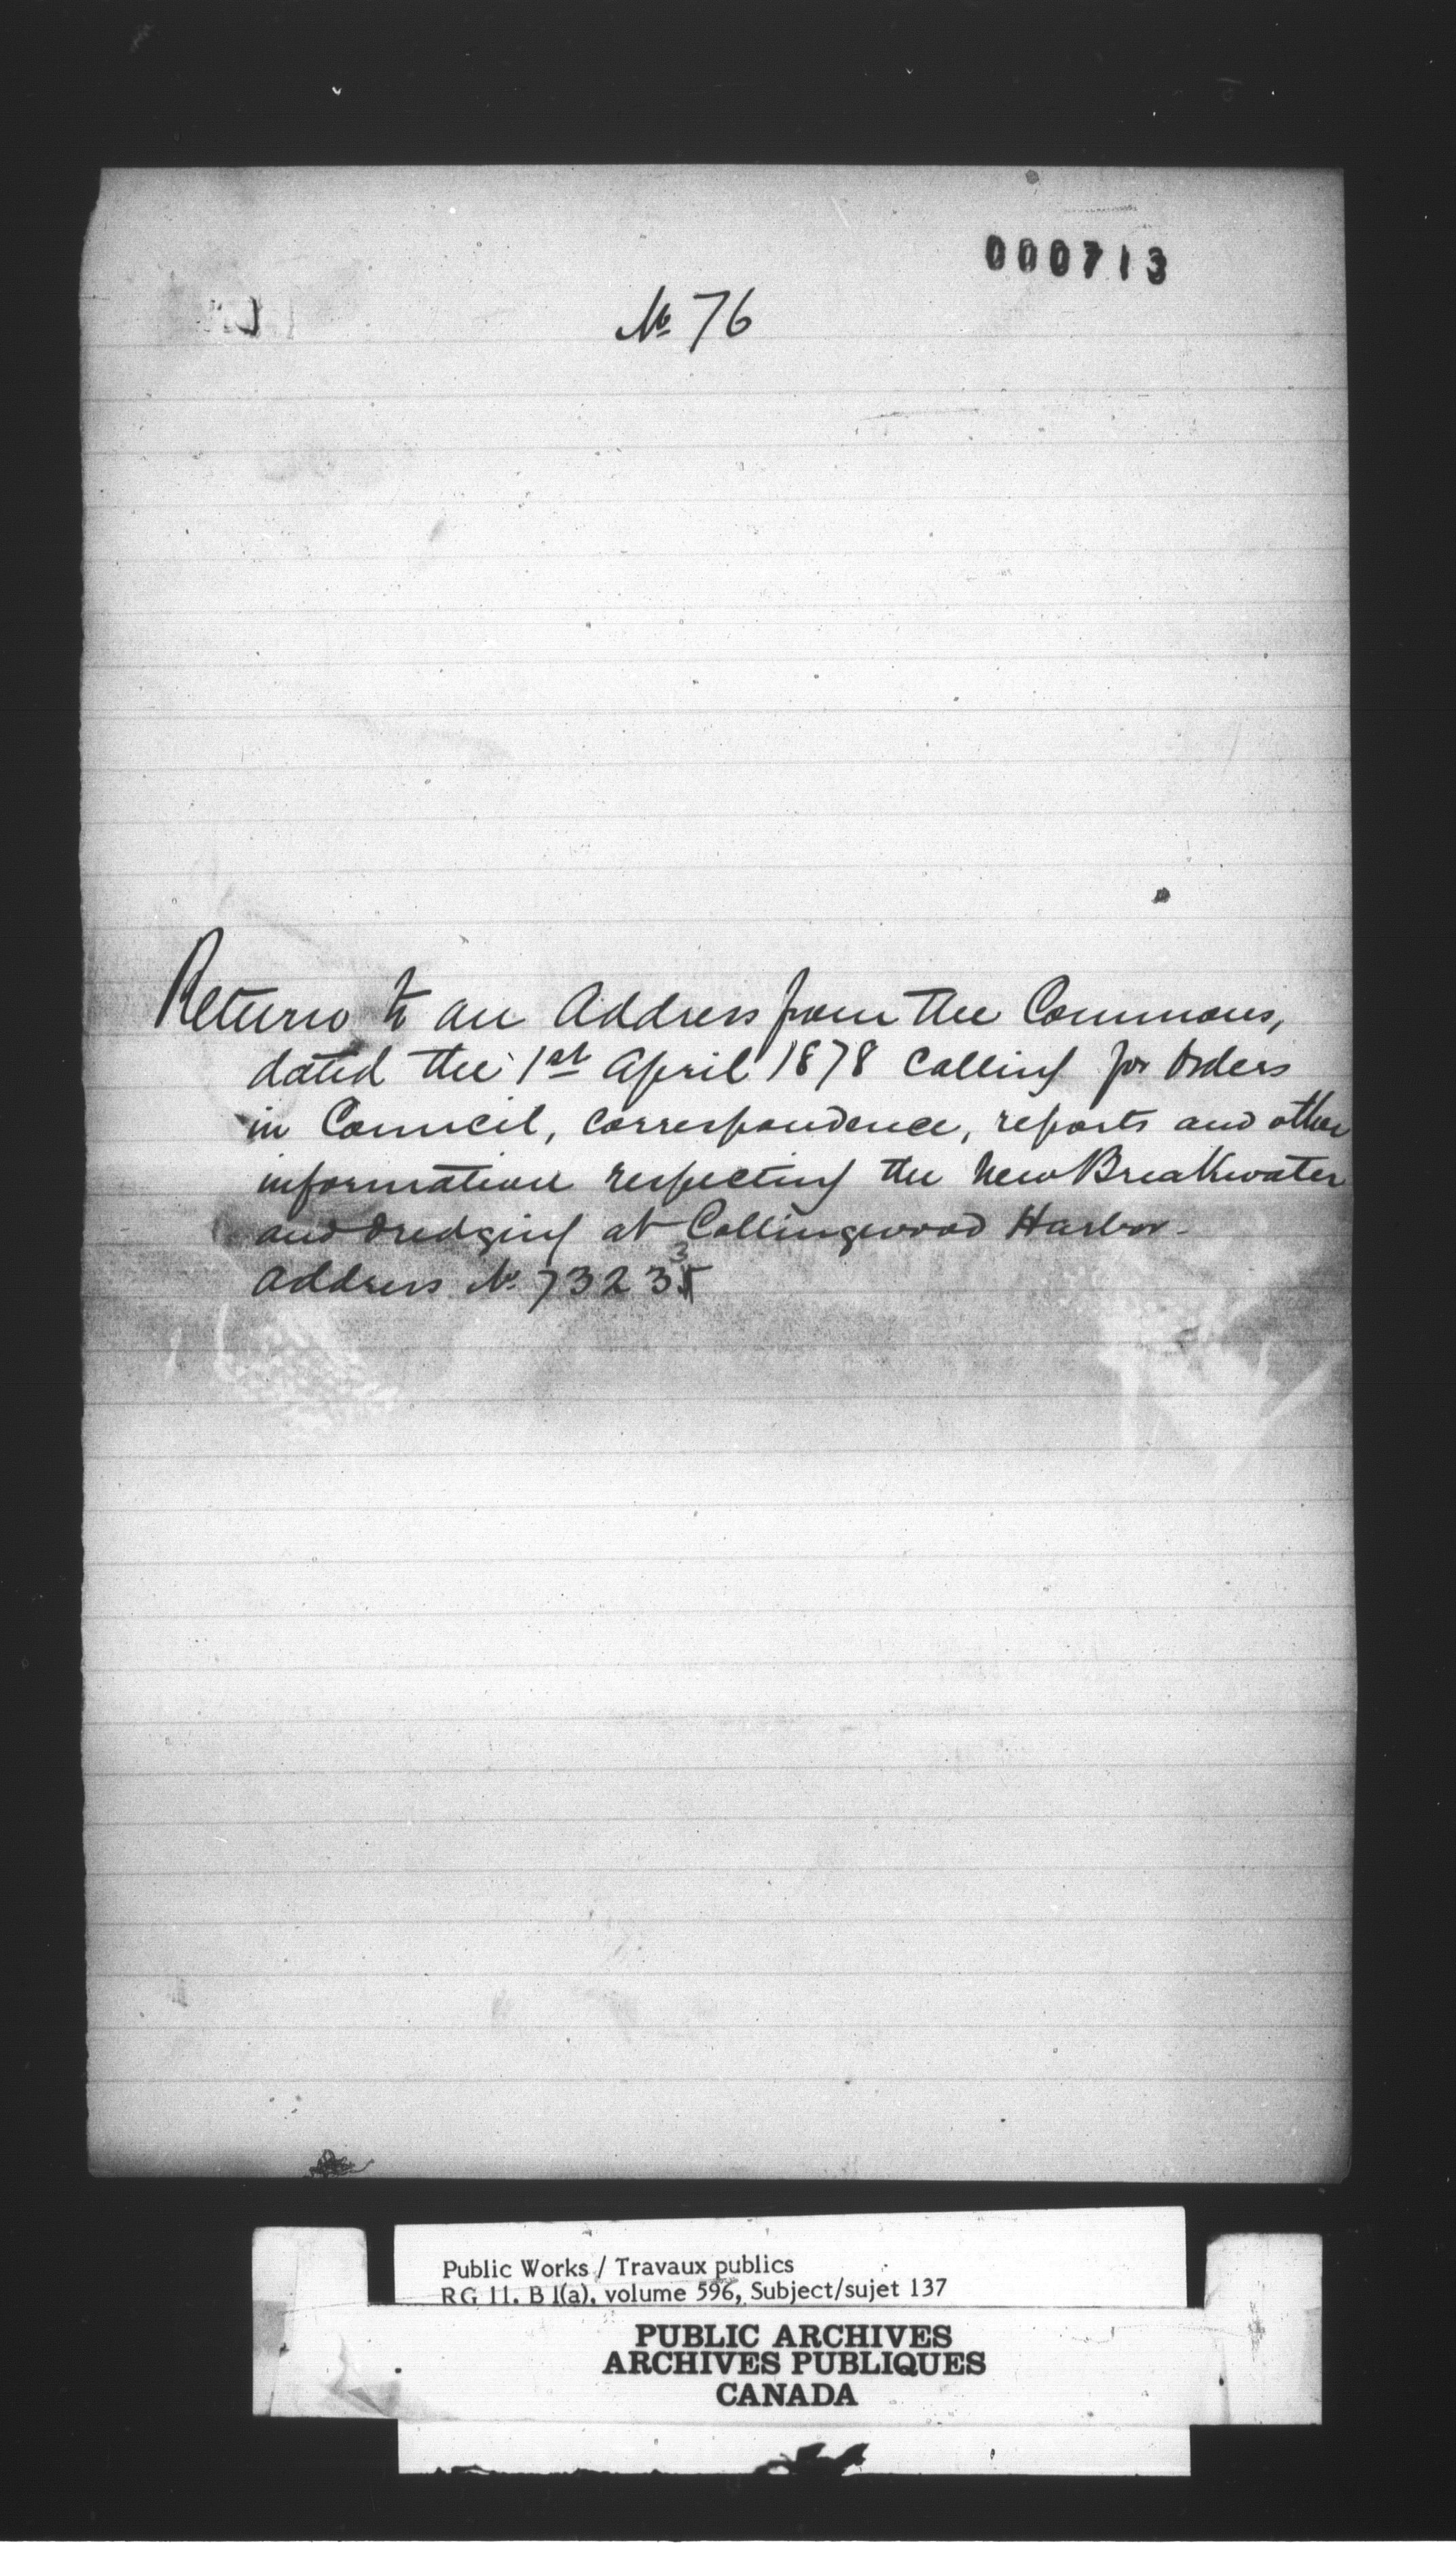 000713
No 76
Return to an Address from the Commons,
dated the 1st April 1878 calling for Orders
in Council, correspondence, reports and other
information respecting the New Breakwater
and dredging at Collingwood Harbor.
Address No 73233
Public Works / Travaux publics
RG 11, B 1(a), volume 596, Subject/sujet 137
PUBLIC ARCHIVES
ARCHIVES PUBLIQUES
CANADA